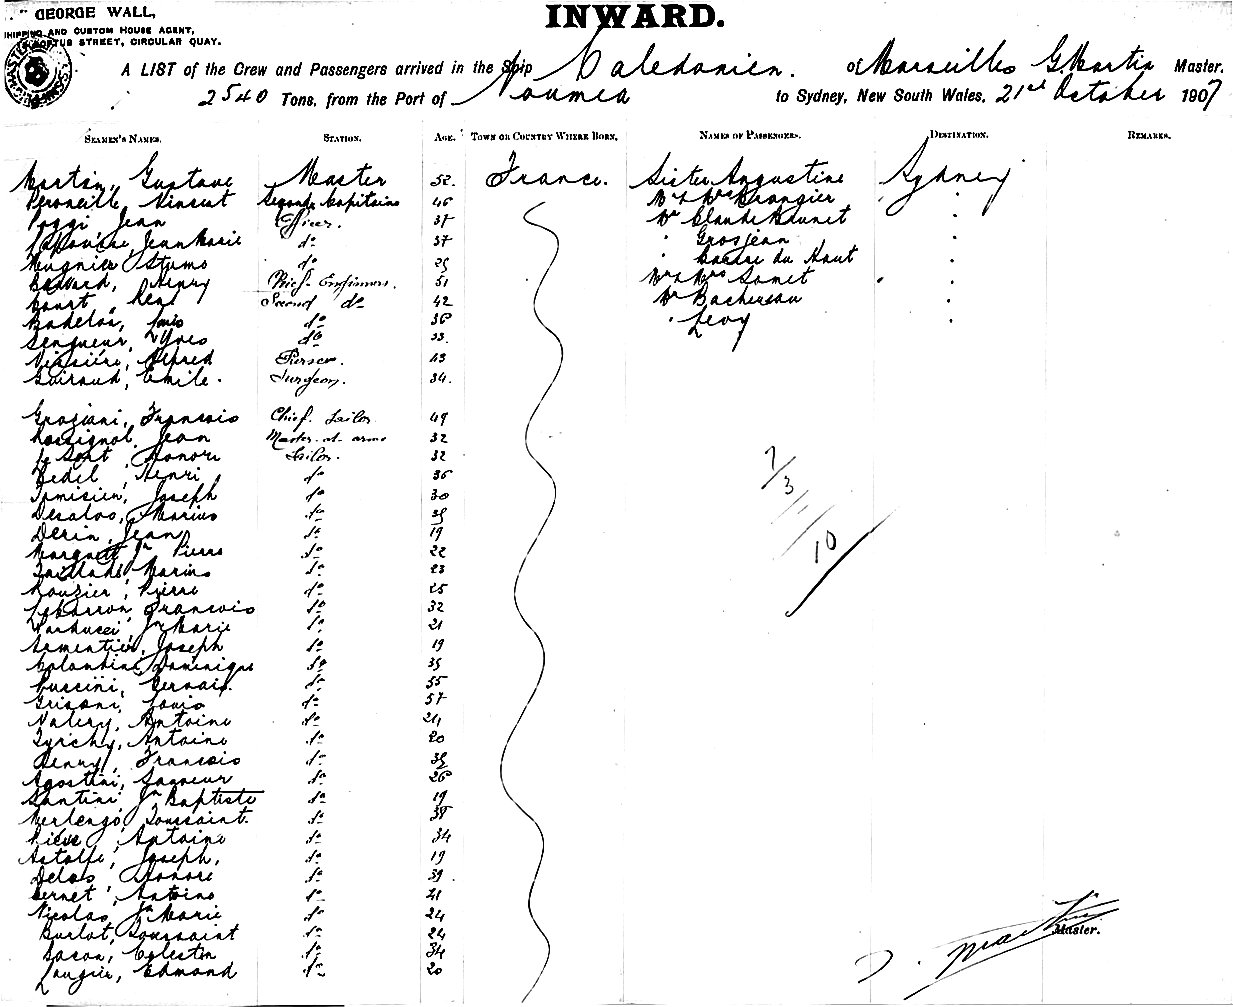 GEORGE WALL,
SHIPPING AND CUSTOM HOUSE AGENT,
STREET, CIRCULAR QUAY.
INWARD.
A LIST of the Crew and Passengers arrived in the Ship Caledonien. of Marseilles G. Martin Master,
2540 Tons, from the Port of Noumea to Sydney, New South Wales, 21st October 1907
SEAMEN'S NAMES. STATION. AGE. TOWN OR COUNTRY WHERE BORN. NAMES OF PASSENGERS. DESTINATION. REMARKS.
Martin, Gustave Master 52. France. Sister Augustine Sydney
Peroneille, Vincent Second Capitaine 46 Mr & Mrs Brangier
Poggi Jean Officer. 37 Mr Claude Brunet
Jean Marie do 37 Grosjean
do du Haut
Henry Chief Engineer. 51 Mr & Mrs Samet
René Second do 42 Mr
Badelos, Louis do 36 Levy
Yves do 33.
Alfred Purser. 43
Guiraud, Emile. Surgeon. 34.
Graziani, Francois Chief. Sailor 49
Rossignol, Jean Master-at-arms 32
Le Honoré Sailor. 32
Bedel, Henri do 36
Tamisien, Joseph do 30
Marius do
Derin, Jean do 19
Jn Pierre do 22
Taillade, Marius do 23
Rouzier, Pierre do 25
Francois do 32
Jn Marie do 21
Armentier, Joseph do 19
Colombini, Dominique do 35
Puccini, Gervais. do 55
Grisoni, Louis do 57
Valery, Antoine do 24
Antoine do 20
Henry, Francois do
Agostini, Sauveur do 26
Santini, Jn Baptiste do 19
Toussaint. do 38
Antoine do 34
Astolfi, Joseph, do 19
Honoré do 39
Vernet, Antoine do 41
Nicolas, Jn Marie do 24
Burlot, Toussaint do 24
Bacon, Celestin do 34
Laugier, Edmond do 20
7
3
10
G. Martin
Master.